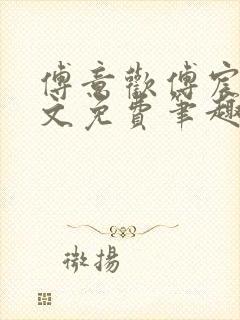 傅意歡傅宸
文免費筆趣
微揚